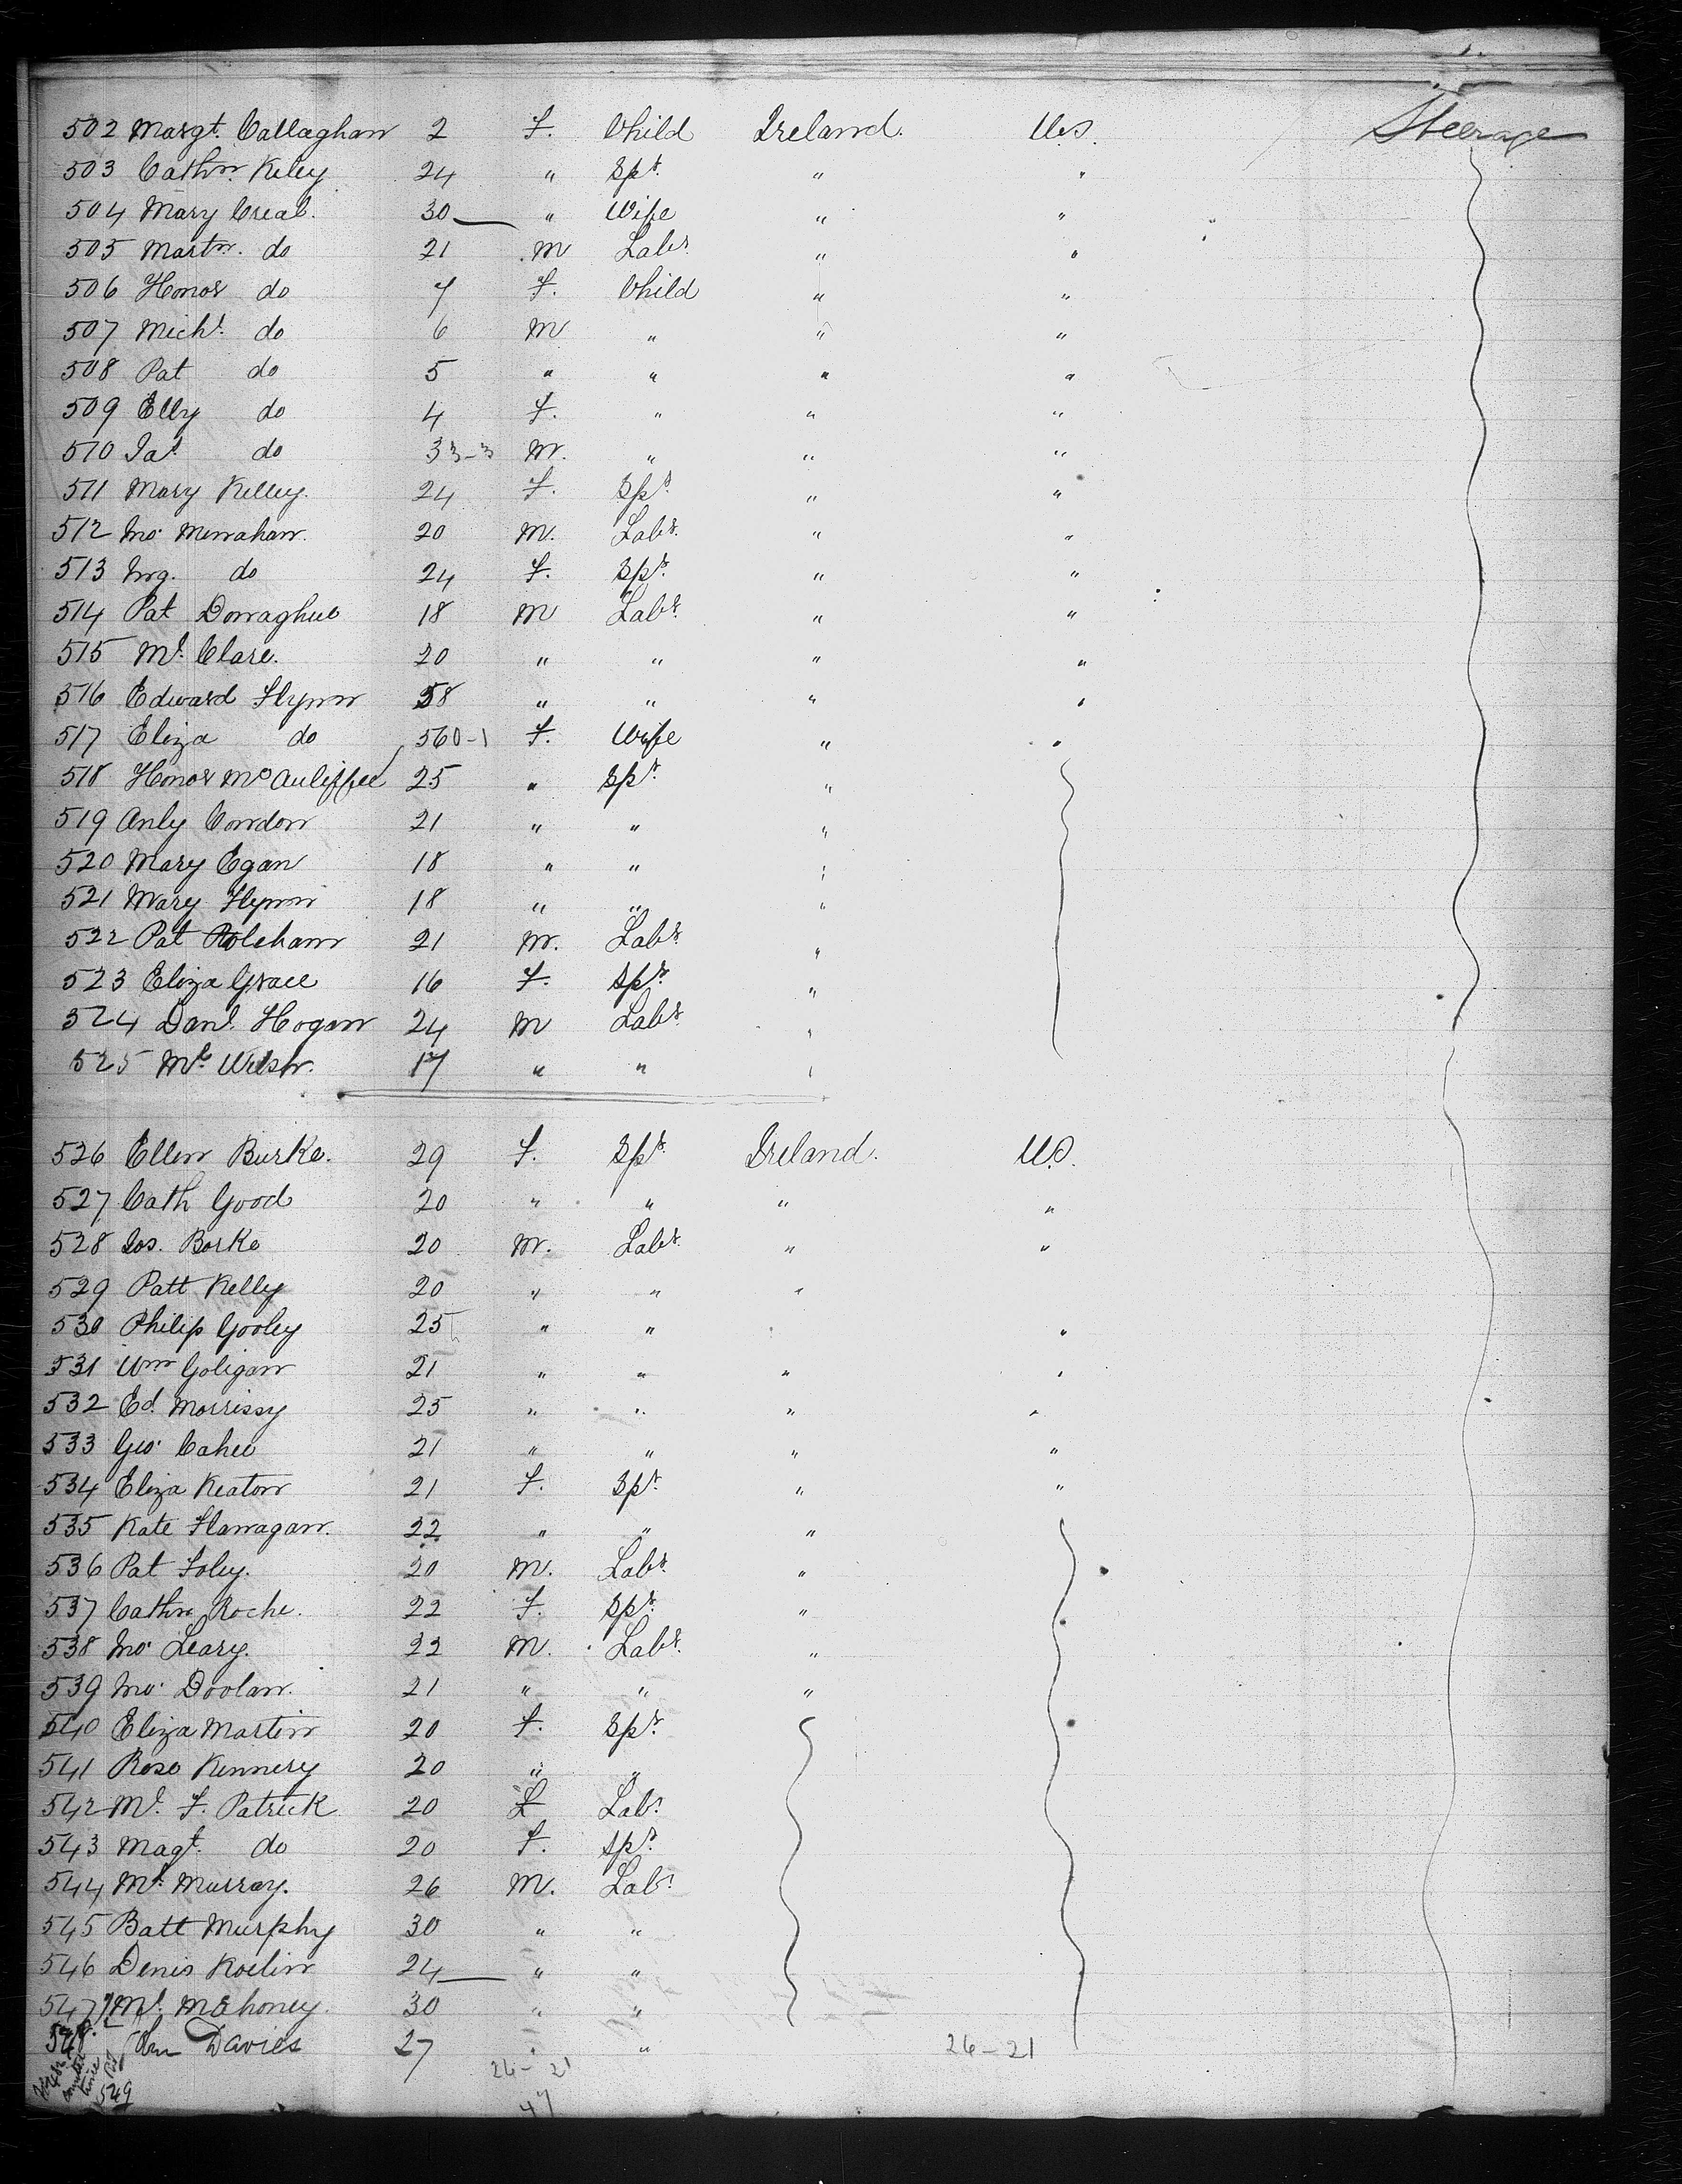 502 Margt. Callaghan 2 F. Child Ireland. U.S. Steerage
503 Cathn. Keley 24 " Spr. " "
504 Mary Creal. 30 " Wife " "
505 Martn. do 21 M Labr. " "
506 Honor do 7 F. Child " "
507 Michl. do 6 M " " "
508 Pat do 5 " " " "
509 Elly do 4 F. " " "
510 Jas. do 3 3-3 M. " " "
511 Mary Kelley. 24 F. Spr. " "
512 Jno. Menahan. 20 M. Labr. " "
513 Mg. do 24 F. Spr. " "
514 Pat Donaghue 18 M Labr. " "
515 Ml. Clare. 20 " " " "
516 Edward Flynn 58 " " " "
517 Eliza do 560-1 F. Wife " "
518 Honor McAuliffee 25 " Spr. "
519 Anly Condon 21 " " "
520 Mary Egan 18 " " "
521 Mary Flynn 18 " " "
522 Pat Holehan 21 M. Labr. "
523 Eliza Grace 16 F. Spr. "
524 Danl. Hogan 24 M Labr. "
525 Ml. Welsh. 17 " " "
526 Ellen Burke. 29 F. Spr. Ireland. U.S.
527 Cath Good 20 " " " "
528 Jos. Borke 20 M. Labr. " "
529 Patt Kelly 20 " " "
530 Philip Gooley 25 " " "
531 Wm Goligan 21 " " " "
532 Ed. Morrissy 25 " " " "
533 Geo. Cahee 21 " " " "
534 Eliza Keaton 21 F. Spr. " "
535 Kate Flanagan. 22 " " "
536 Pat Foley. 20 M. Labr. "
537 Cathn Roche. 22 F. Spr. "
538 Jno. Leary. 22 M. Labr. "
539 Jno. Doolan. 21 " " "
540 Eliza Martin 20 F. Spr.
541 Rose Kennery 20 " "
542 Ml. F. Patrick 20 Labr.
543 Magt. do 20 F. Spr.
544 Ml. Murray. 26 M. Labr.
545 Batt Murphy 30 " "
546 Denis Roelin 24 " "
547 Ml. Mahoney. 30 " "
548 Davies 27 " " 26-21
26-21
549
47